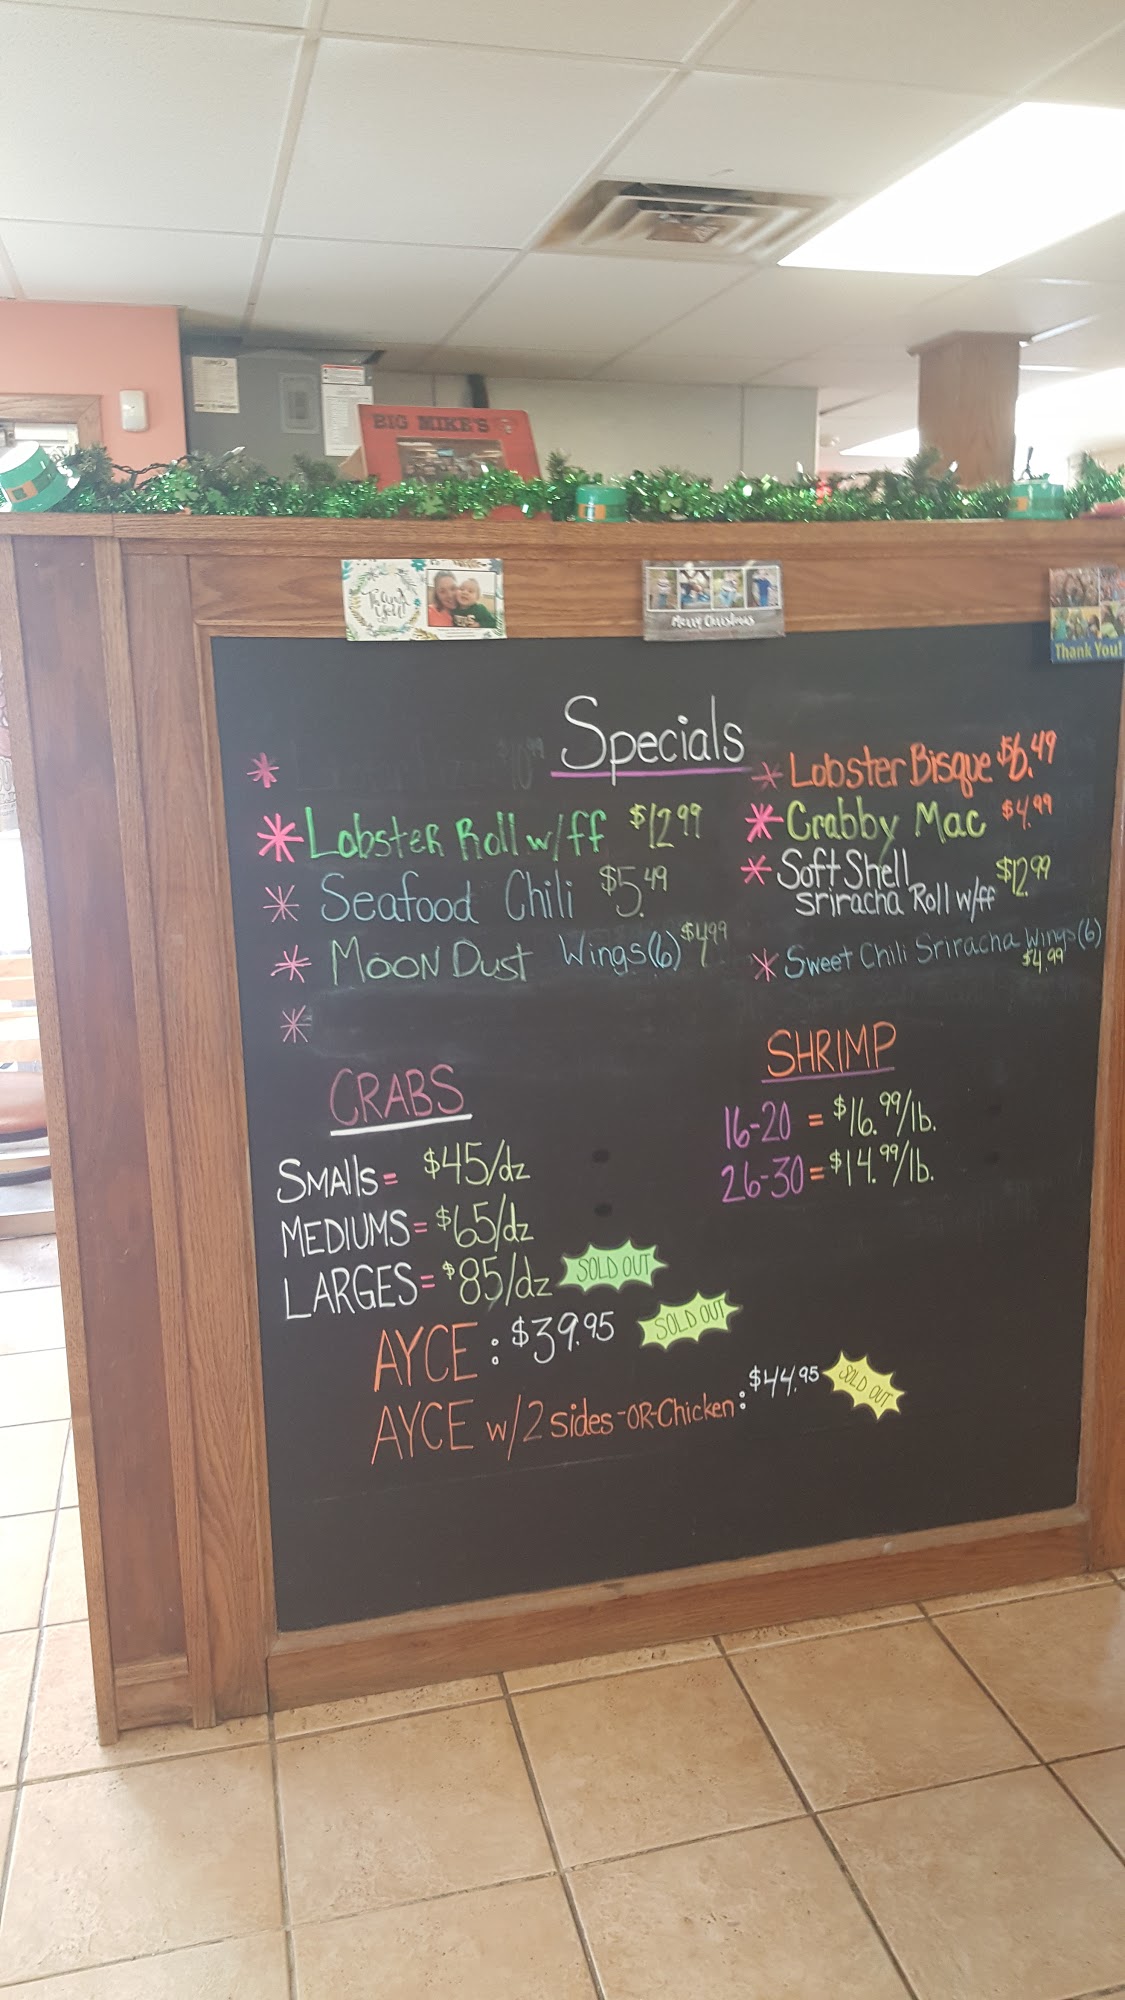 BIG MIKE'S
Thank you!
Merry Christmas
Thank You!
Specials
*
* Lobster Roll w/ff $12.99
* Seafood Chili $5.49
* Moon Dust Wings(6) $4.99
*
* Lobster Bisque $6.49
* Crabby Mac $4.99
* Soft Shell
sriracha Roll w/ff $12.99
* Sweet Chili Sriracha Wings(6)
$4.99
CRABS
Smalls = $45/dz
MEDIUMS = $65/dz
LARGES = $85/dz SOLD OUT
AYCE: $39.95 SOLD OUT
AYCE w/2 sides-OR-Chicken: $44.95 SOLD OUT
SHRIMP
16-20 = $16.99/lb.
26-30 = $14.99/lb.